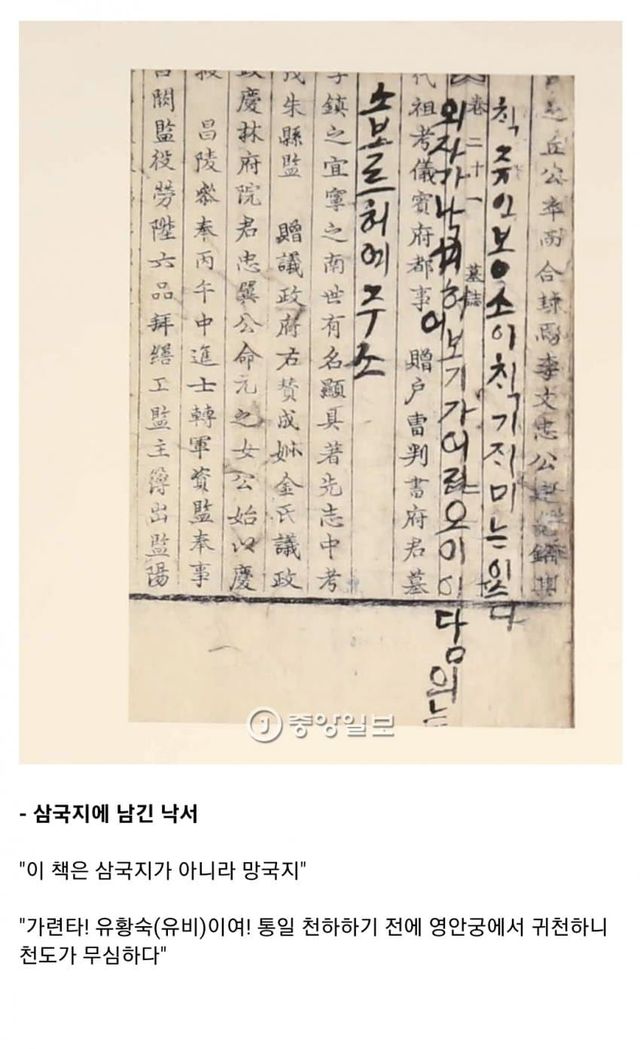 丘公奉而合葬焉李文忠公
칙쥬인보오소이칙기지미는잇다
卷二十一 墓誌
외자가낙셔허여보기가어렵오이이다음의는
代祖考儀賓府都事 贈戶曹判書府君墓
소보르허여주소
字鎭之宜寧之南世有名顯具著先志中考
茂朱縣監 贈議政府右贊成妣金氏議政
政慶林府院君忠翼公命元之女公始以慶
昌陵參奉丙午中進士轉軍資監奉事
闕監役勞陞六品拜繕工監主簿出監陽
J 중앙일보
- 삼국지에 남긴 낙서
"이 책은 삼국지가 아니라 망국지"
"가련타! 유황숙(유비)이여! 통일 천하하기 전에 영안궁에서 귀천하니
천도가 무심하다"